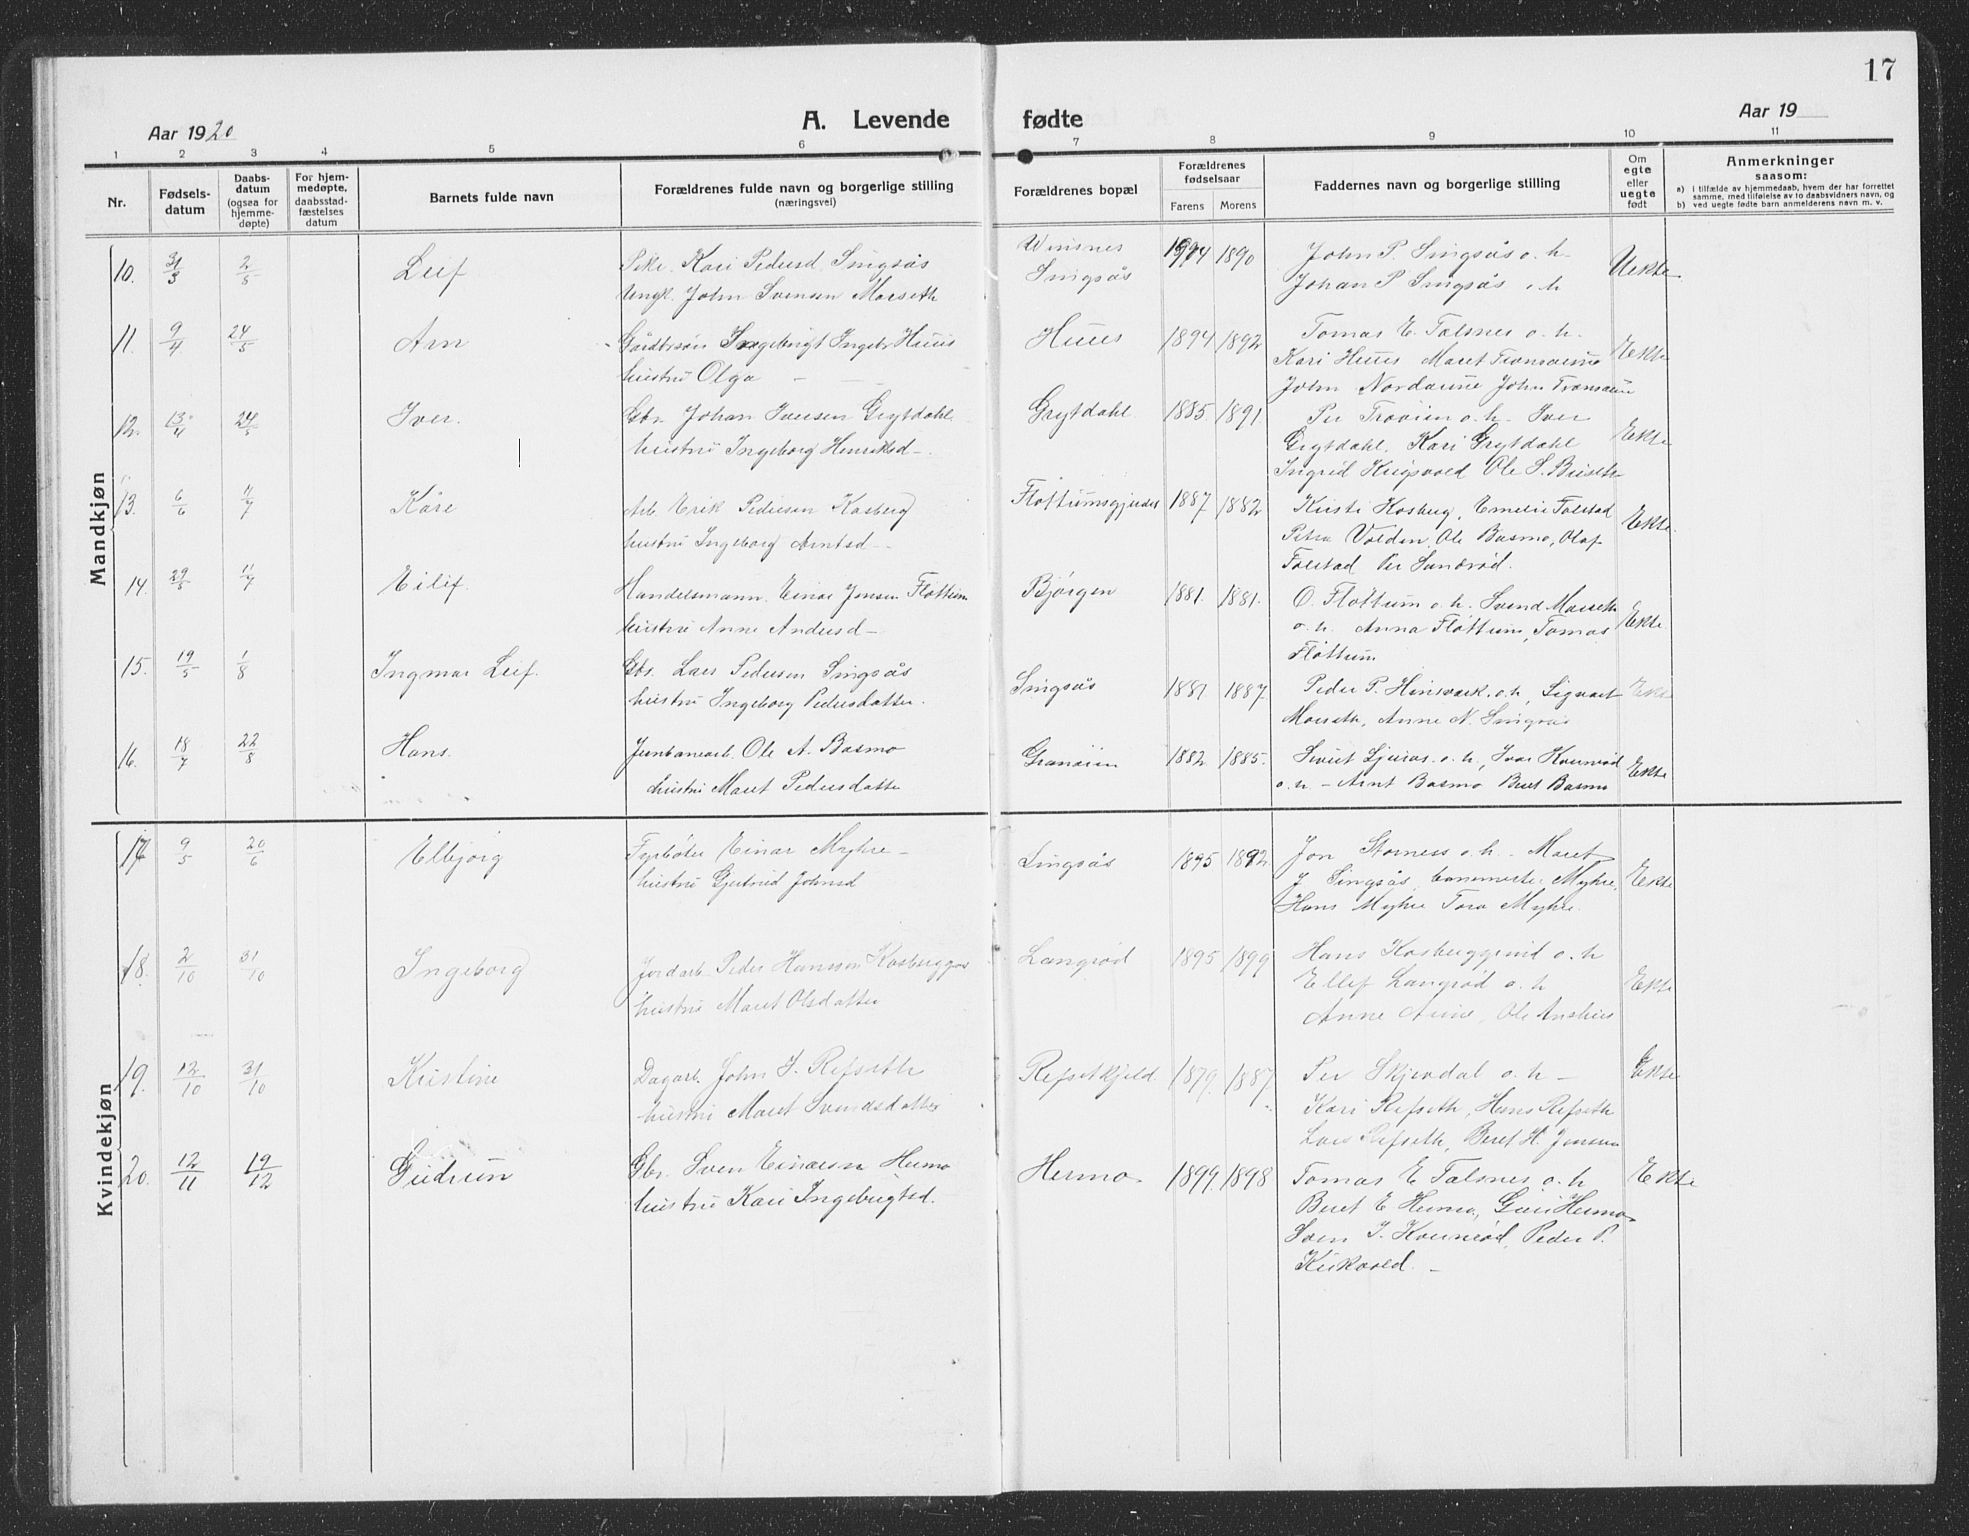 17
Aar 1920
A. Levende fødte
Aar 19
1 2 3 4 5 6 7 8 9 10 11
Nr.
Fødsels-
datum
Daabs-
datum
(ogsaa for
hjemme-
døpte)
For hjem-
medøpte,
daabsstad-
fæstelses
datum
Barnets fulde navn
Forældrenes fulde navn og borgerlige stilling
(næringsvei)
Forældrenes bopæl
Forældrenes
fødselsaar
Farens Morens
Faddernes navn og borgerlige stilling
Om
egte
eller
uegte
født
Anmerkninger
saasom:
a) i tilfælde av hjemmedaab, hvem der har forrettet
samme, med tilføielse av to daabsvidners navn, og
b) ved uegte fødte barn anmelderens navn m. v.
Mandkjøn
10. 31/3 2/5 Leif Pike Kari Pedersd. Singsås Winsnes 1904 1890 John P. Singsås o. h. Uekte
Ungk. John Svensen Moseth Singsås Johan P Singsås o. h
11. 9/4 24/5 Arn Gårdbrson Ingebrigt Ingebr Huus Huus 1894 1892 Tomas E. Talsnes o. h. Ekte
hustru Olga Kari Huus Maret
John John
12. 13/4 24/5 Iver. Gbr. Johan Iversen Grytdahl Grytdahl 1885 1891 Per o. h. Iver Ekte
hustru Ingeborg Henriksd Grytdahl, Kari Grytdahl
Ingrid Ole S.
13. 6/6 11/7 Kåre Arb. Erik Pedersen Kosberg Flottumsgjerdet 1887 1882 Kirsti Kosberg, Emelie Folstad Ekte
hustru Ingeborg Arntsd Petra Volden, Ole Basmo, Olaf
Folstad Per Sundrød.
14. 29/5 11/7 Eilif. Handelsmann. Einar Jensen Flottum Bjørgen 1881. 1881. O. Flottum o. h. Svend Moseth Ekte
hustru Anne Andersd o. h. Anna Flottum, Tomas
Flottum
15. 19/5 1/8 Ingmar Leif. Gbr. Lars Pedersen Singsås Singsås 1881. 1887. Peder P. o. h, Sigvart Ekte
hustru Ingeborg Pedersdatter. Moseth, Anne N. Singsås
16. 18/7 22/8 Hans. Jernbanearb. Ole A. Basmo Granøien 1882 1885. o. h, Ivar Kverrød Ekte
hustru Maret Pedersdatte o. h – Arnt Basmo Beret Basmo
Kvindekjøn
17 9/5 20/6 Elbjørg Fyrbøter Einar Myhre Singsås 1895 1892. Jon Storness o. h. – Maret Ekte
hustru Gjertrud Johnsd J Singsås, Myhre,
Hans Myhre Tora Myhre.
18. 2/10 31/10 Ingeborg Jordarb. Peder Hansen Langrød 1895 1899 Hans o. h Ekte
hustru Maret Olsdatter Ellef Langrød o. h
Anne Aune, Ole
19. 12/10 31/10 Kristine Dagarb. John J. Refseth Refsetkjeld 1879. 1887 Per Skjerdal o. h – Ekte
hustru Maret Svendsdatter Kari Refseth, Hans Refseth
Lars Refseth, Beret H. Jensen
20. 12/11 19/12 Gudrun Gbr. Sven Einarsen Hermo Hermo 1899. 1898 Tomas E Talsnes o. h Ekte
hustru Kari Ingebrigtsd. Beret E Hermo, Guri Hermo
Sven I. Kverrød, Peder P.
Kirkvold. –